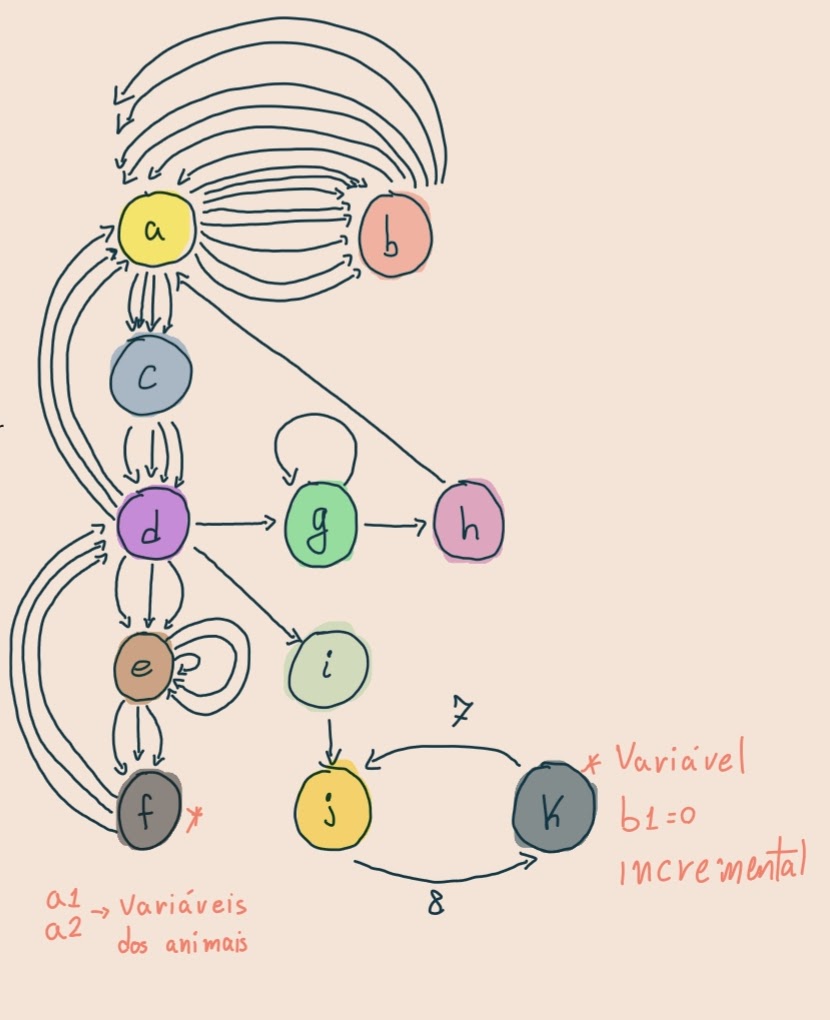 a
b
c
d
g
h
e
i
7
f
*
j
k
* Variável
b1=0
incremental
8
a1
a2 → Variáveis
dos animais